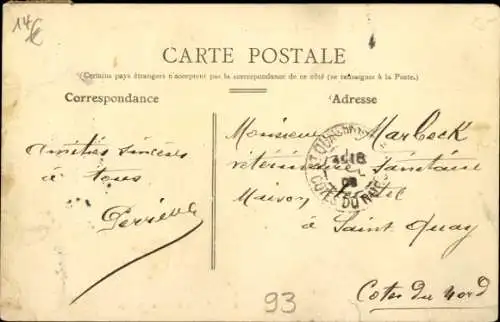 14€
CARTE POSTALE
(Certains pays étrangers n'acceptent pas la correspondance de ce côté (se renseigner à la Poste.)
Correspondance
Adresse
Monsieur Marbeck
vétérinaire Sanitaire
Maison
à Saint Quay
Cotes du Nord
Amitiés sincères
à tous
ST QUAY
18
COTES DU NORD
93